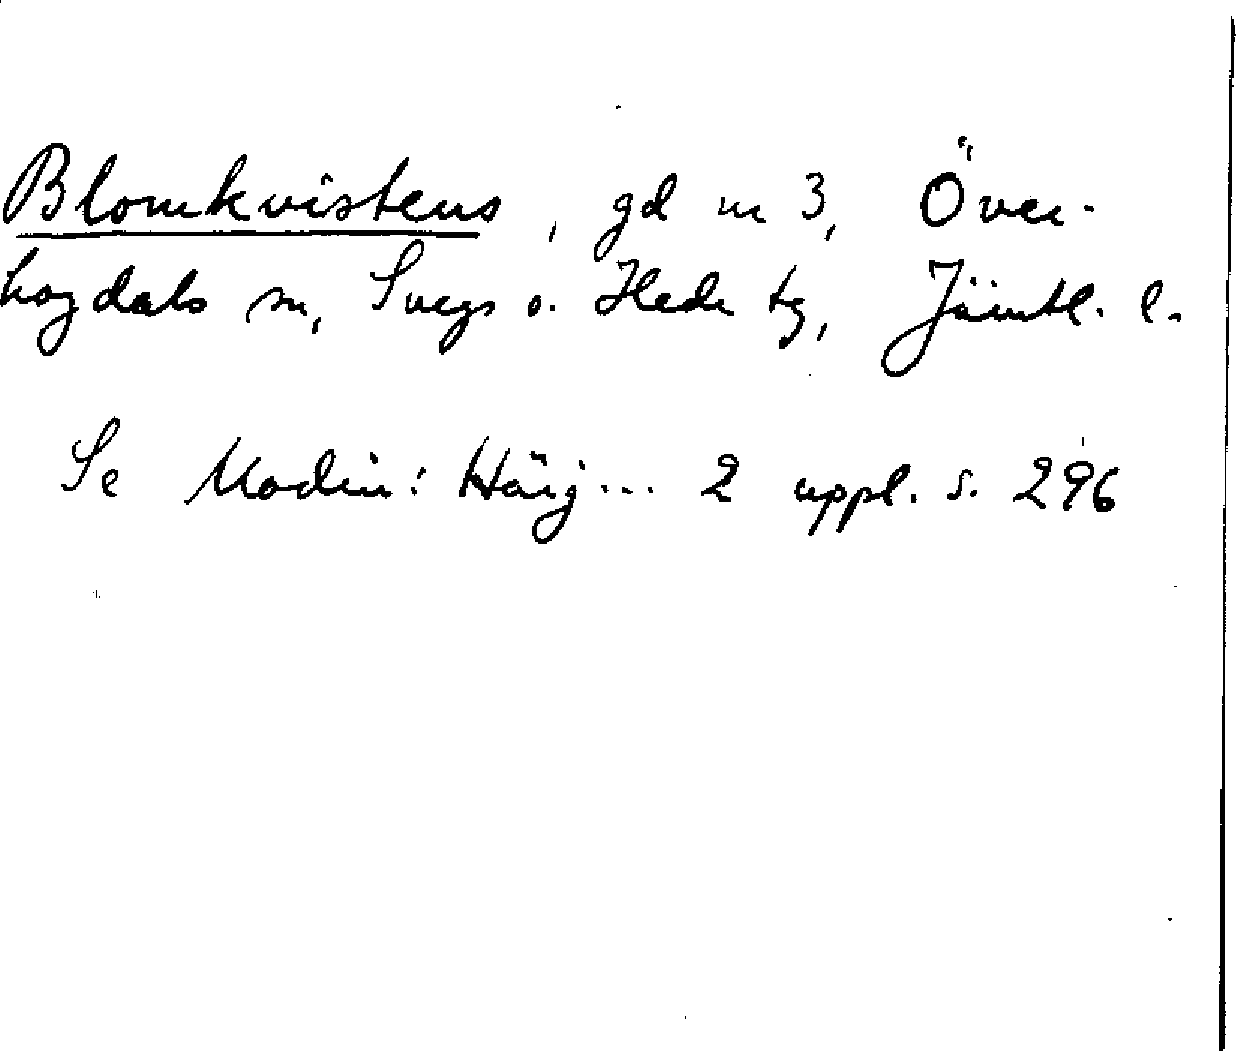 Blomkvistens, gd nr 3, Över-
hogdals sn, Svegs o. Hede tg, Jämtl. l.
Se Modin: Härj... 2 uppl. s. 296